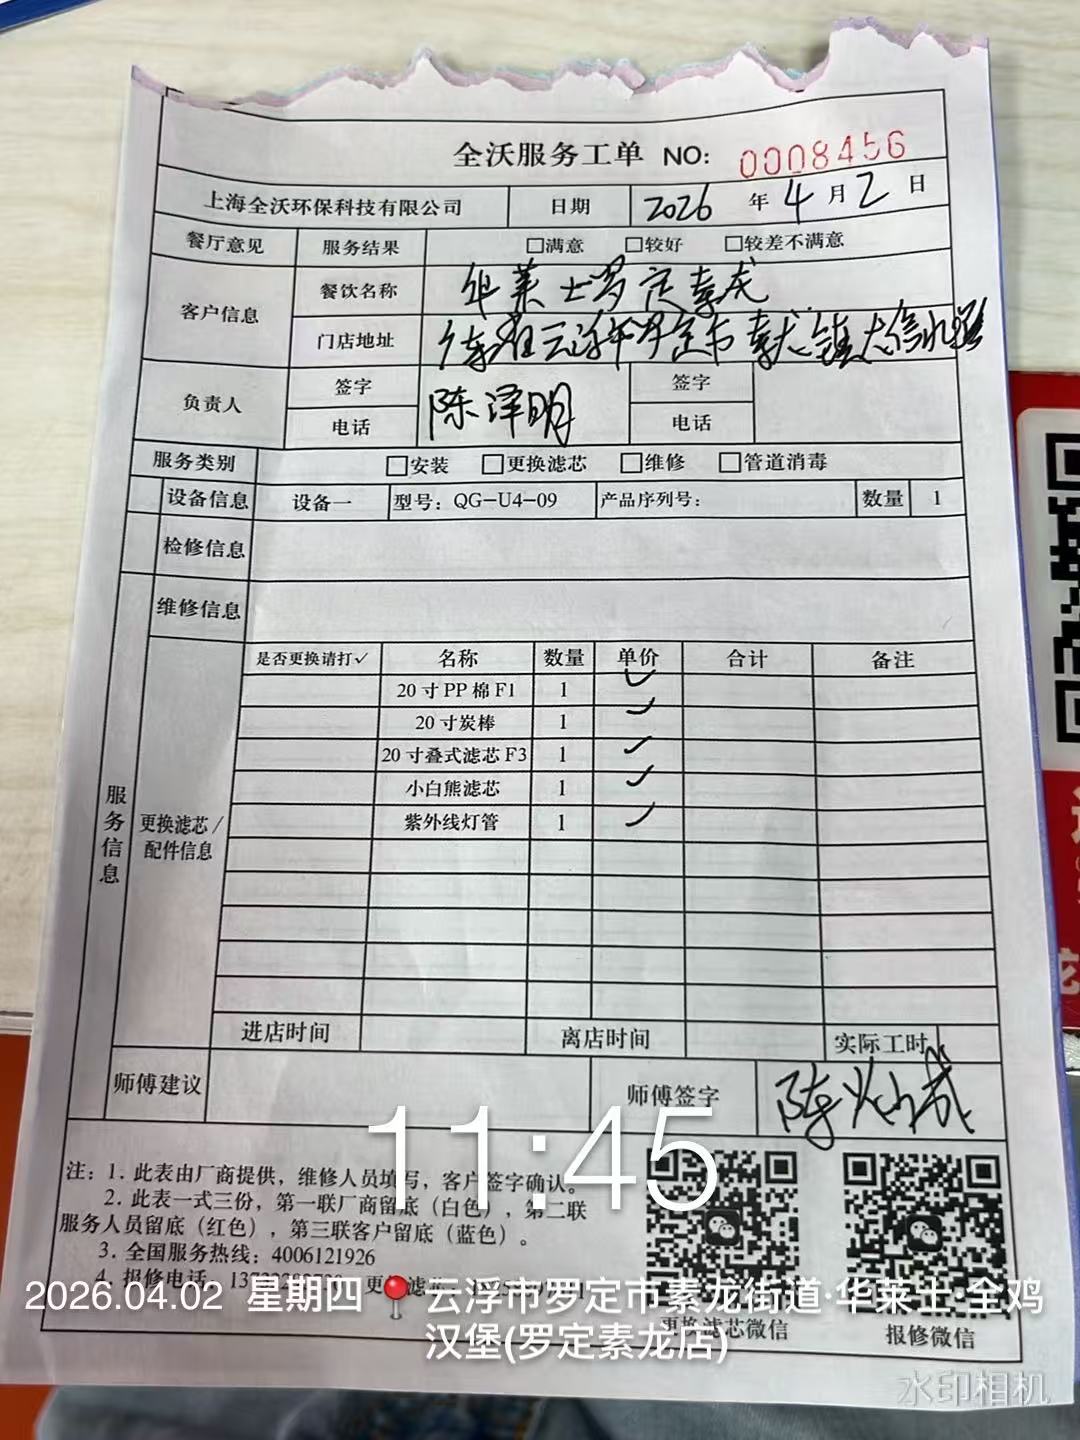 全沃服务工单 NO: 0008456
上海全沃环保科技有限公司 日期 2026 年 4 月 2 日
餐厅意见 服务结果 □满意 □较好 □较差不满意
客户信息 餐饮名称 华莱士罗定素龙
门店地址 广东省云浮市罗定市素龙镇大
负责人 签字 陈泽明 签字
电话 电话
服务类别 □安装 □更换滤芯 □维修 □管道消毒
设备信息 设备一 型号: QG-U4-09 产品序列号: 数量 1
检修信息
维修信息
服务信息
更换滤芯/
配件信息
是否更换请打✓ 名称 数量 单价 合计 备注
20寸PP棉F1 1 ✓
20寸炭棒 1 ✓
20寸叠式滤芯F3 1 ✓
小白熊滤芯 1 ✓
紫外线灯管 1 ✓
进店时间 离店时间 实际工时
师傅建议 师傅签字 陈
11:45
注: 1. 此表由厂商提供，维修人员填写，客户签字确认。
2. 此表一式三份，第一联厂商留底（白色），第二联
服务人员留底（红色），第三联客户留底（蓝色）。
3. 全国服务热线: 4006121926
4. 报修电话
更换滤芯微信 报修微信
2026.04.02 星期四 云浮市罗定市素龙街道·华莱士·全鸡
汉堡(罗定素龙店)
水印相机